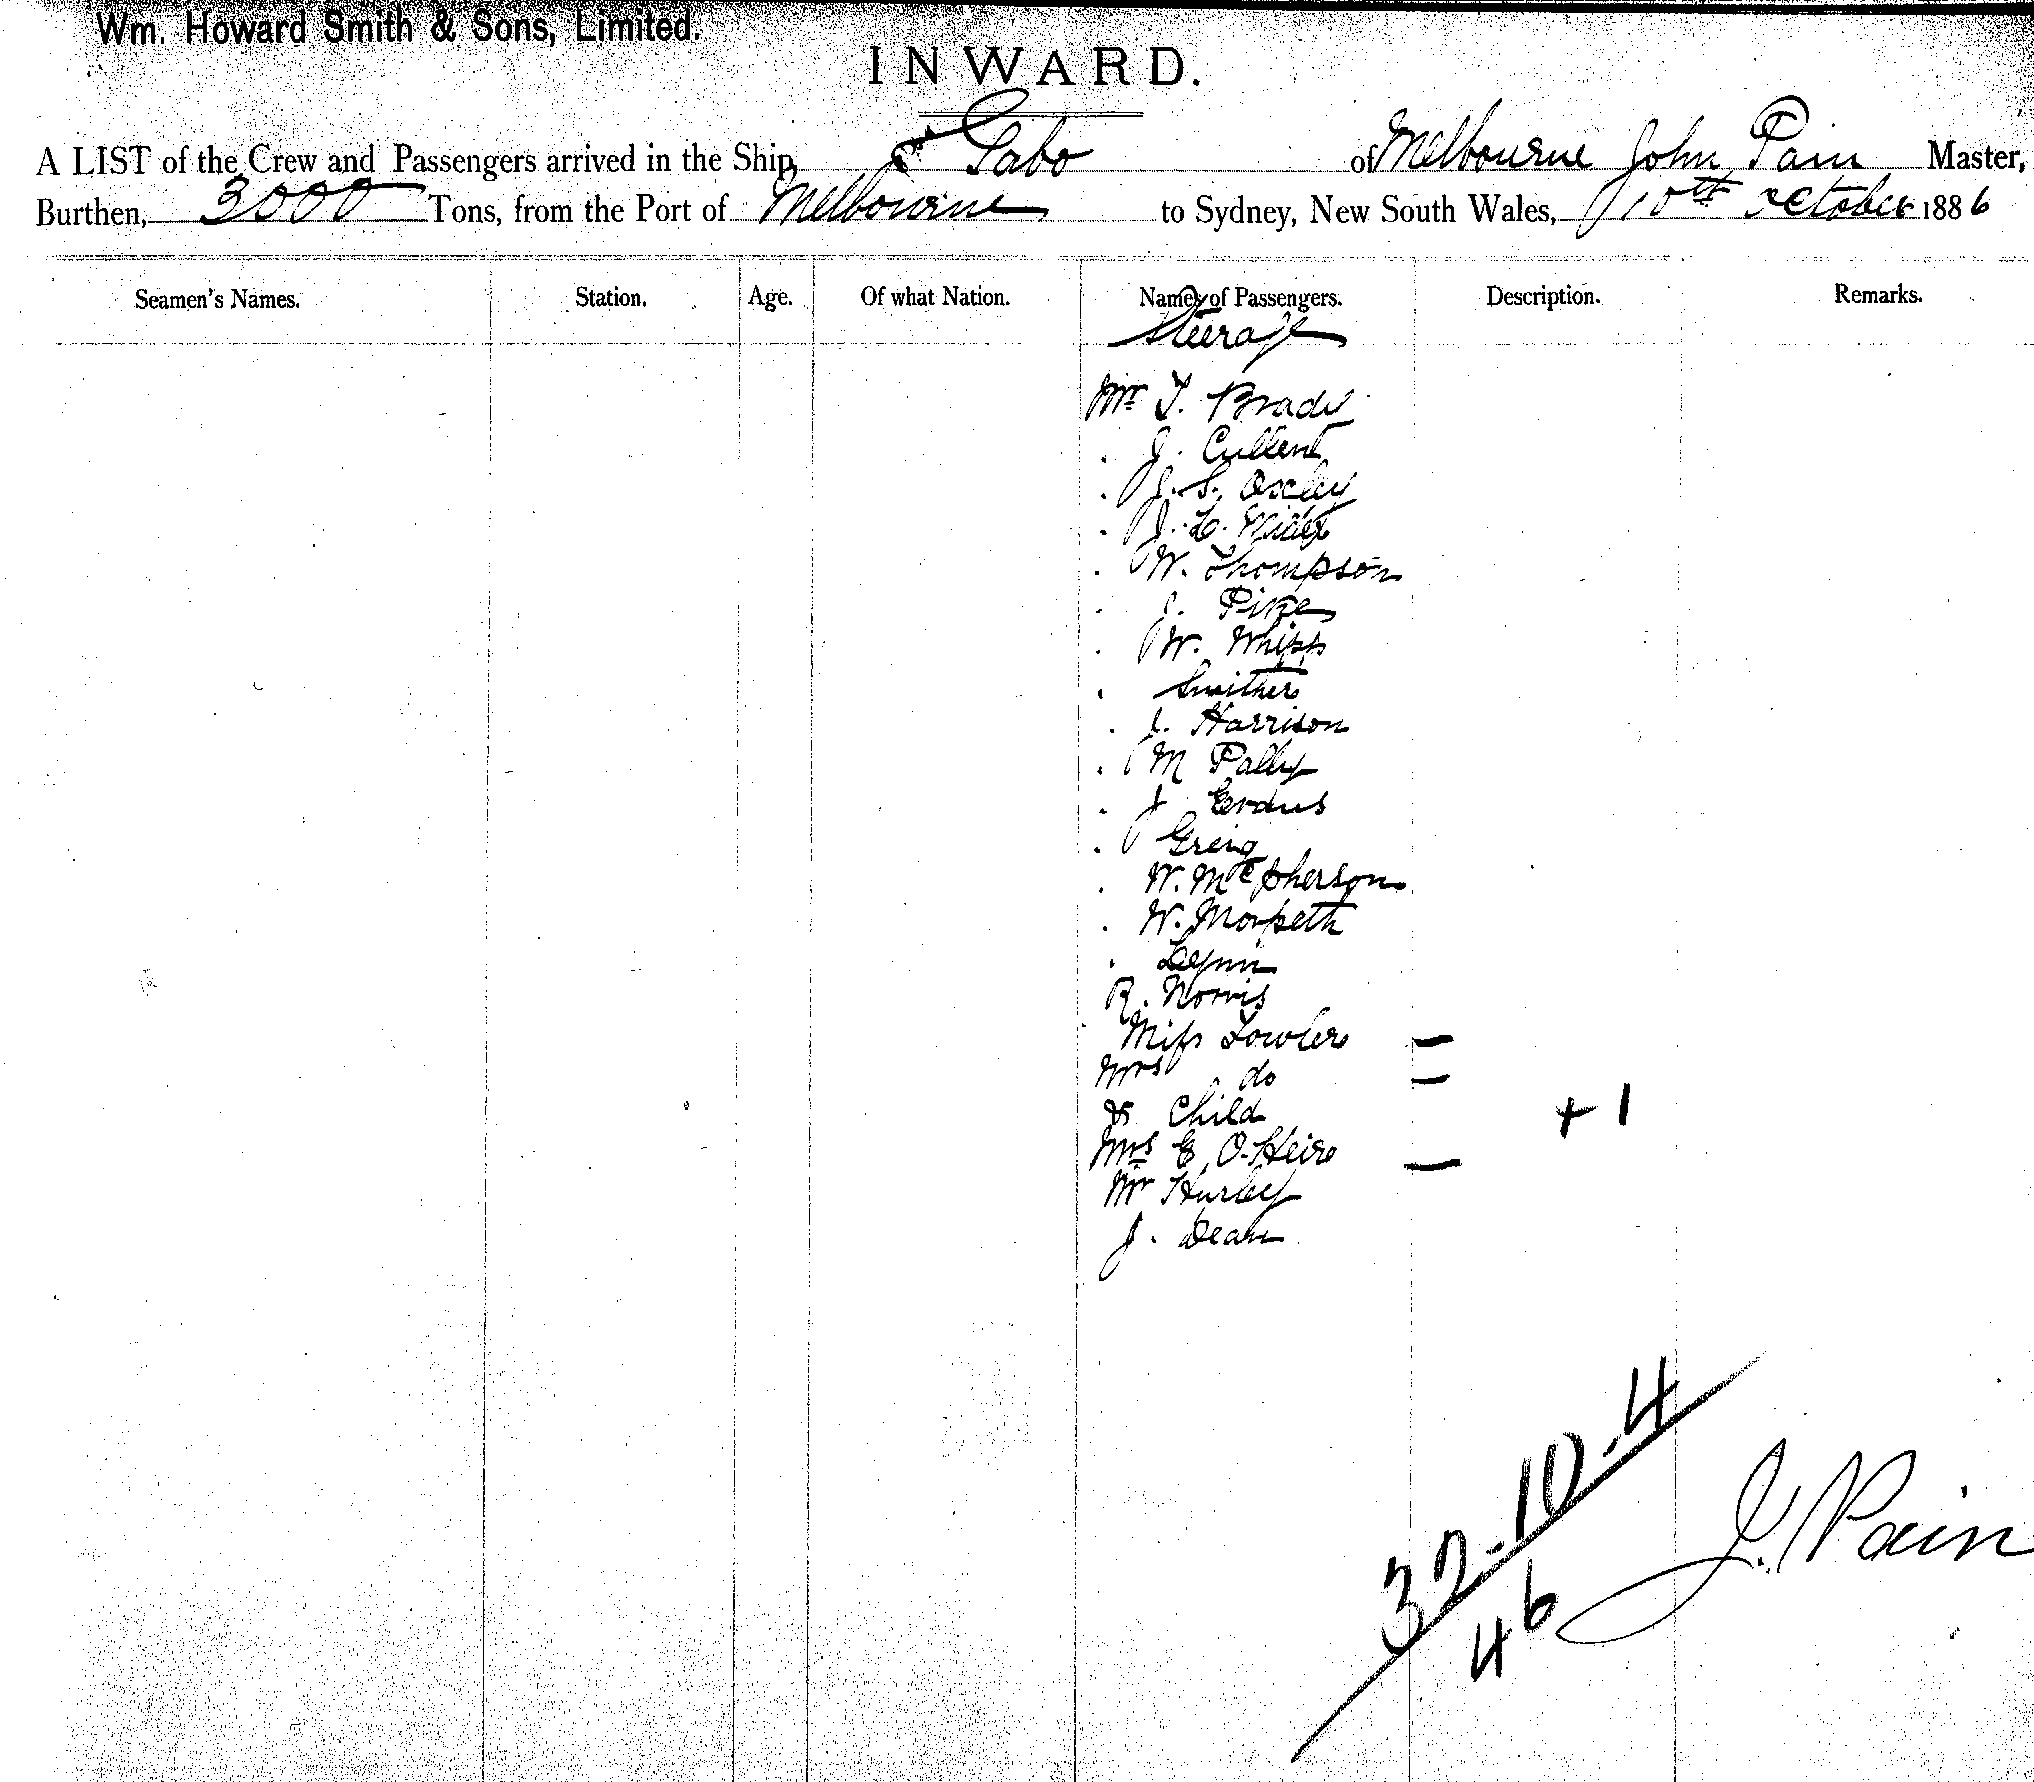 Wm. Howard Smith & Sons, Limited.
INWARD.
A LIST of the Crew and Passengers arrived in the Ship, Gabo of Melbourne John Pain Master,
Burthen, 3000 Tons, from the Port of Melbourne to Sydney, New South Wales, 10th October 1886
Seamen's Names. Station. Age. Of what Nation. Names of Passengers. Description. Remarks.
Steerage
Mr T. Brady
. J. Cullent
. J. S. Oxley
. J.
. W. Thompson
. J. Pike
. W. Whipp
. Smithers
. J. Harrison
. M Pally
. J Evans
. Greig
. W. McPherson
. W. Morpeth
. Lynn
R. Norris
Miss Fowler –
Mrs do –
& Child + 1
Mrs E. O'Heir –
Mr Hurley
J. Dean
32.10.4
46
J. Pain